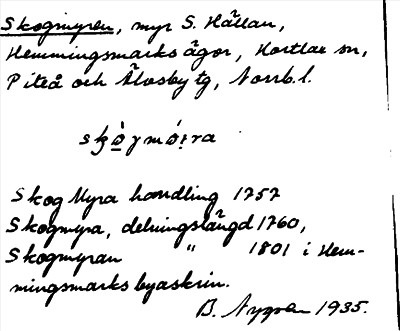 Skogmyren, myr S. Hällan,
Hemmingsmarks ägor, Hortlax sn,
Piteå och Älvsby tg, Norrb. l.
Skog Myra handling 1757
Skogmyra, delningslängd 1760,
Skogmyran " 1801 i Hem-
mingsmarks byaskrin.
B. Nygren 1935.